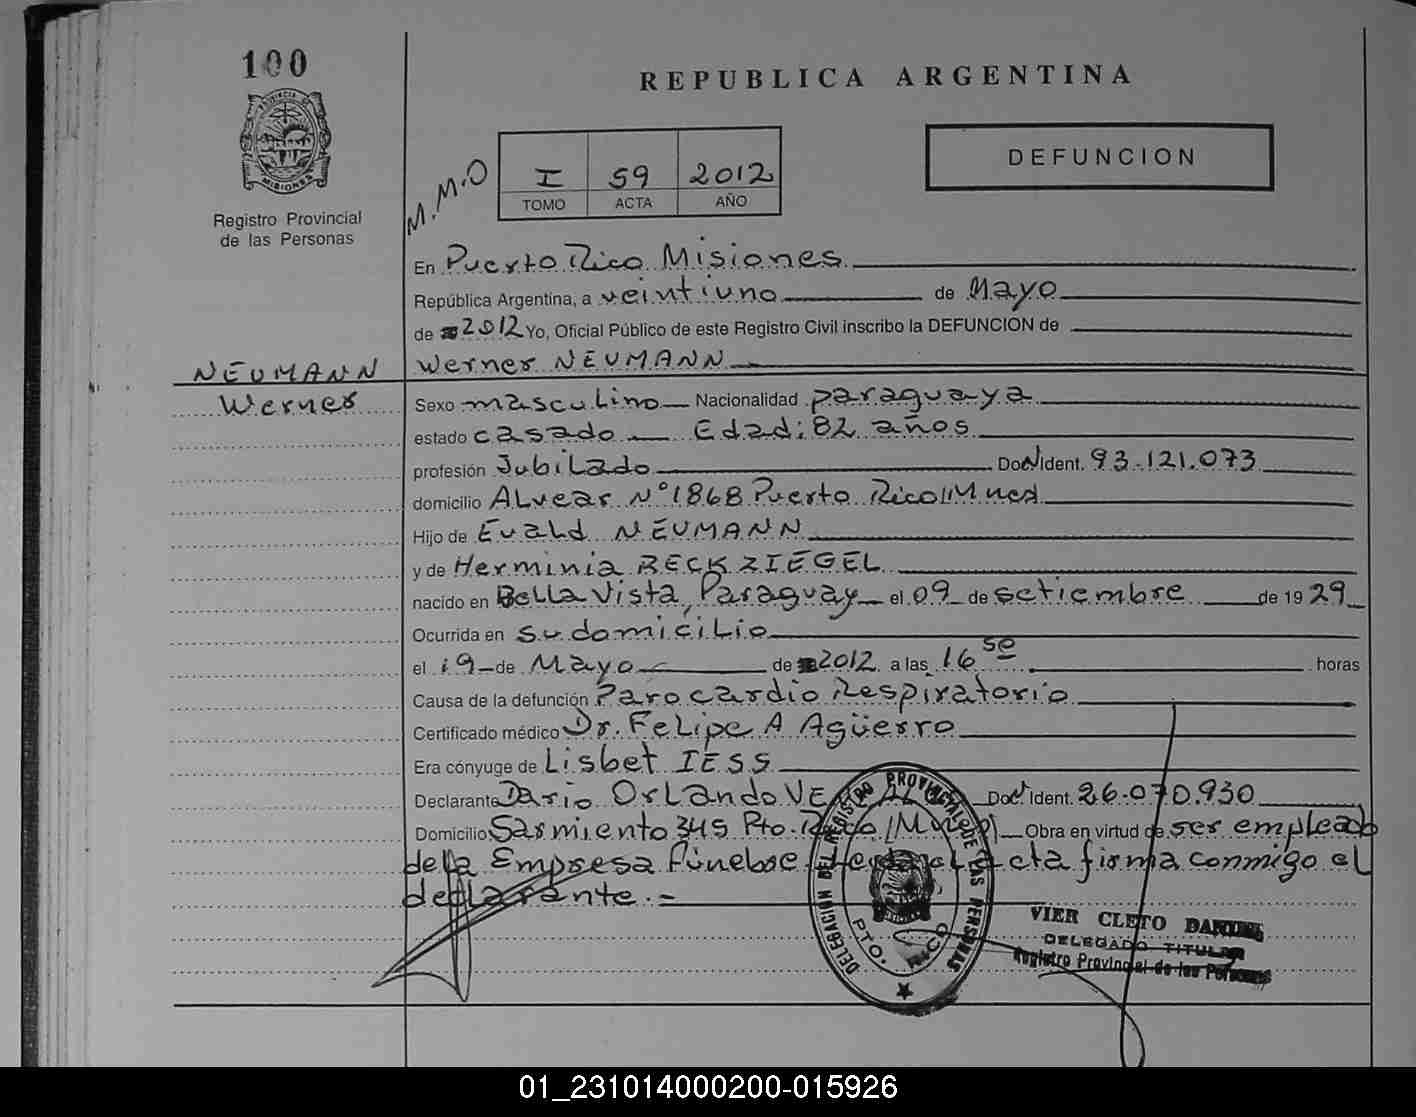 100
PROVINCIA DE
MISIONES
Registro Provincial
de las Personas
REPUBLICA ARGENTINA
M.M.O
I 59 2012
TOMO ACTA AÑO
DEFUNCION
En Puerto Rico Misiones
República Argentina, a veintiuno de Mayo
de 2012 Yo, Oficial Público de este Registro Civil inscribo la DEFUNCION de
NEUMANN Werner NEUMANN
Werner
Sexo masculino Nacionalidad paraguaya
estado casado Edad: 82 años
profesión Jubilado Doc N° ident. 93.121.073
domicilio Alvear N° 1868 Puerto Rico
Hijo de Evald NEUMANN
y de Herminia RECKZIEGEL
nacido en Bella Vista, Paraguay el 09 de setiembre de 1929
Ocurrida en su domicilio
el 19 de Mayo de 2012 a las 16 50 horas
Causa de la defunción Paro cardio Respiratorio
Certificado médico Dr. Felipe A Agüerro
Era cónyuge de Lisbet IESS
Declarante Dario Orlando Ident. 26.070.930
Domicilio Sarmiento 345 Pto. Rico Obra en virtud de ser empleado
de la Empresa Fúnebre acta firma conmigo el
declarante.=
DELEGACION DEL REGISTRO PROVINCIAL DE LAS PERSONAS
PTO. RICO
VIER CLETO DANIEL
DELEGADO TITULAR
Registro Provincial de las Personas
01_231014000200-015926